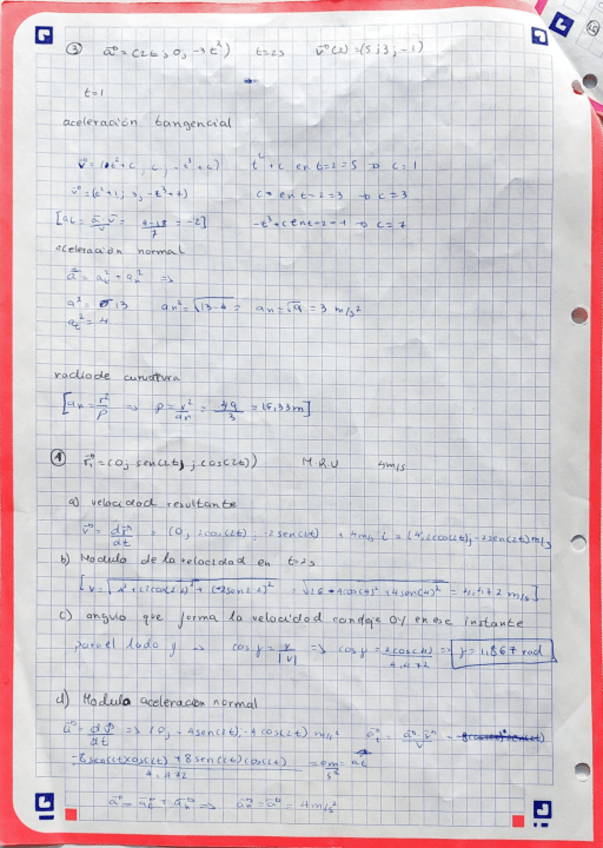 ③ a⃗ = (2t; 0, -t²) t=2s v⃗(2)=(5; 3; -1)
t=1
aceleración tangencial
v⃗ = (t²+c, c, -t³+c) t²+c en t=2=5 → c=1
v⃗ = (t²+1; 3, -t³+7) c → en t=2=3 → c=3
[at = a⃗·v⃗/v = 4-18/7 = -2] -t³+c en t=2=-1 → c=7
aceleración normal
a⃗ = at² + an² ⇒
a² = 13 an² = √13-4 = an = √9 = 3 m/s²
at² = 4
radio de curvatura
[an = v²/ρ ⇒ ρ = v²/an = 49/3 = 16,33m]
④ r⃗ = (0; sen(2t); cos(2t)) M.R.U 4m/s
a) velocidad resultante
v⃗ = dr⃗/dt = (0, 2cos(2t), -2sen(2t)) + 4m/s i = (4, 2cos(2t); -2sen(2t)) m/s
b) Modulo de la velocidad en t=2s
[v = √4²+(2cos(2t))²+(-2sen2t)² = √16+4cos(4)²+4sen(4)² = 4,472 m/s]
c) angulo que forma la velocidad con deje OY en ese instante
para el lado y → cos γ = v/|v| ⇒ cos γ = 2cos(4)/4,472 ⇒ γ = 1,867 rad
d) Modulo aceleracion normal
a⃗ = dv⃗/dt ⇒ (0, -4sen(2t); -4cos(2t)) m/s² at = a⃗·v⃗/v =
-8sen(2t)cos(2t)+8sen(2t)cos(2t)/4,472 = 0m/s² = at
a⃗ = at + an ⇒ an = a⃗ = 4m/s²